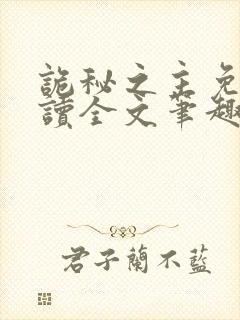 詭秘之主免
讀全文筆趣
君子蘭不藍